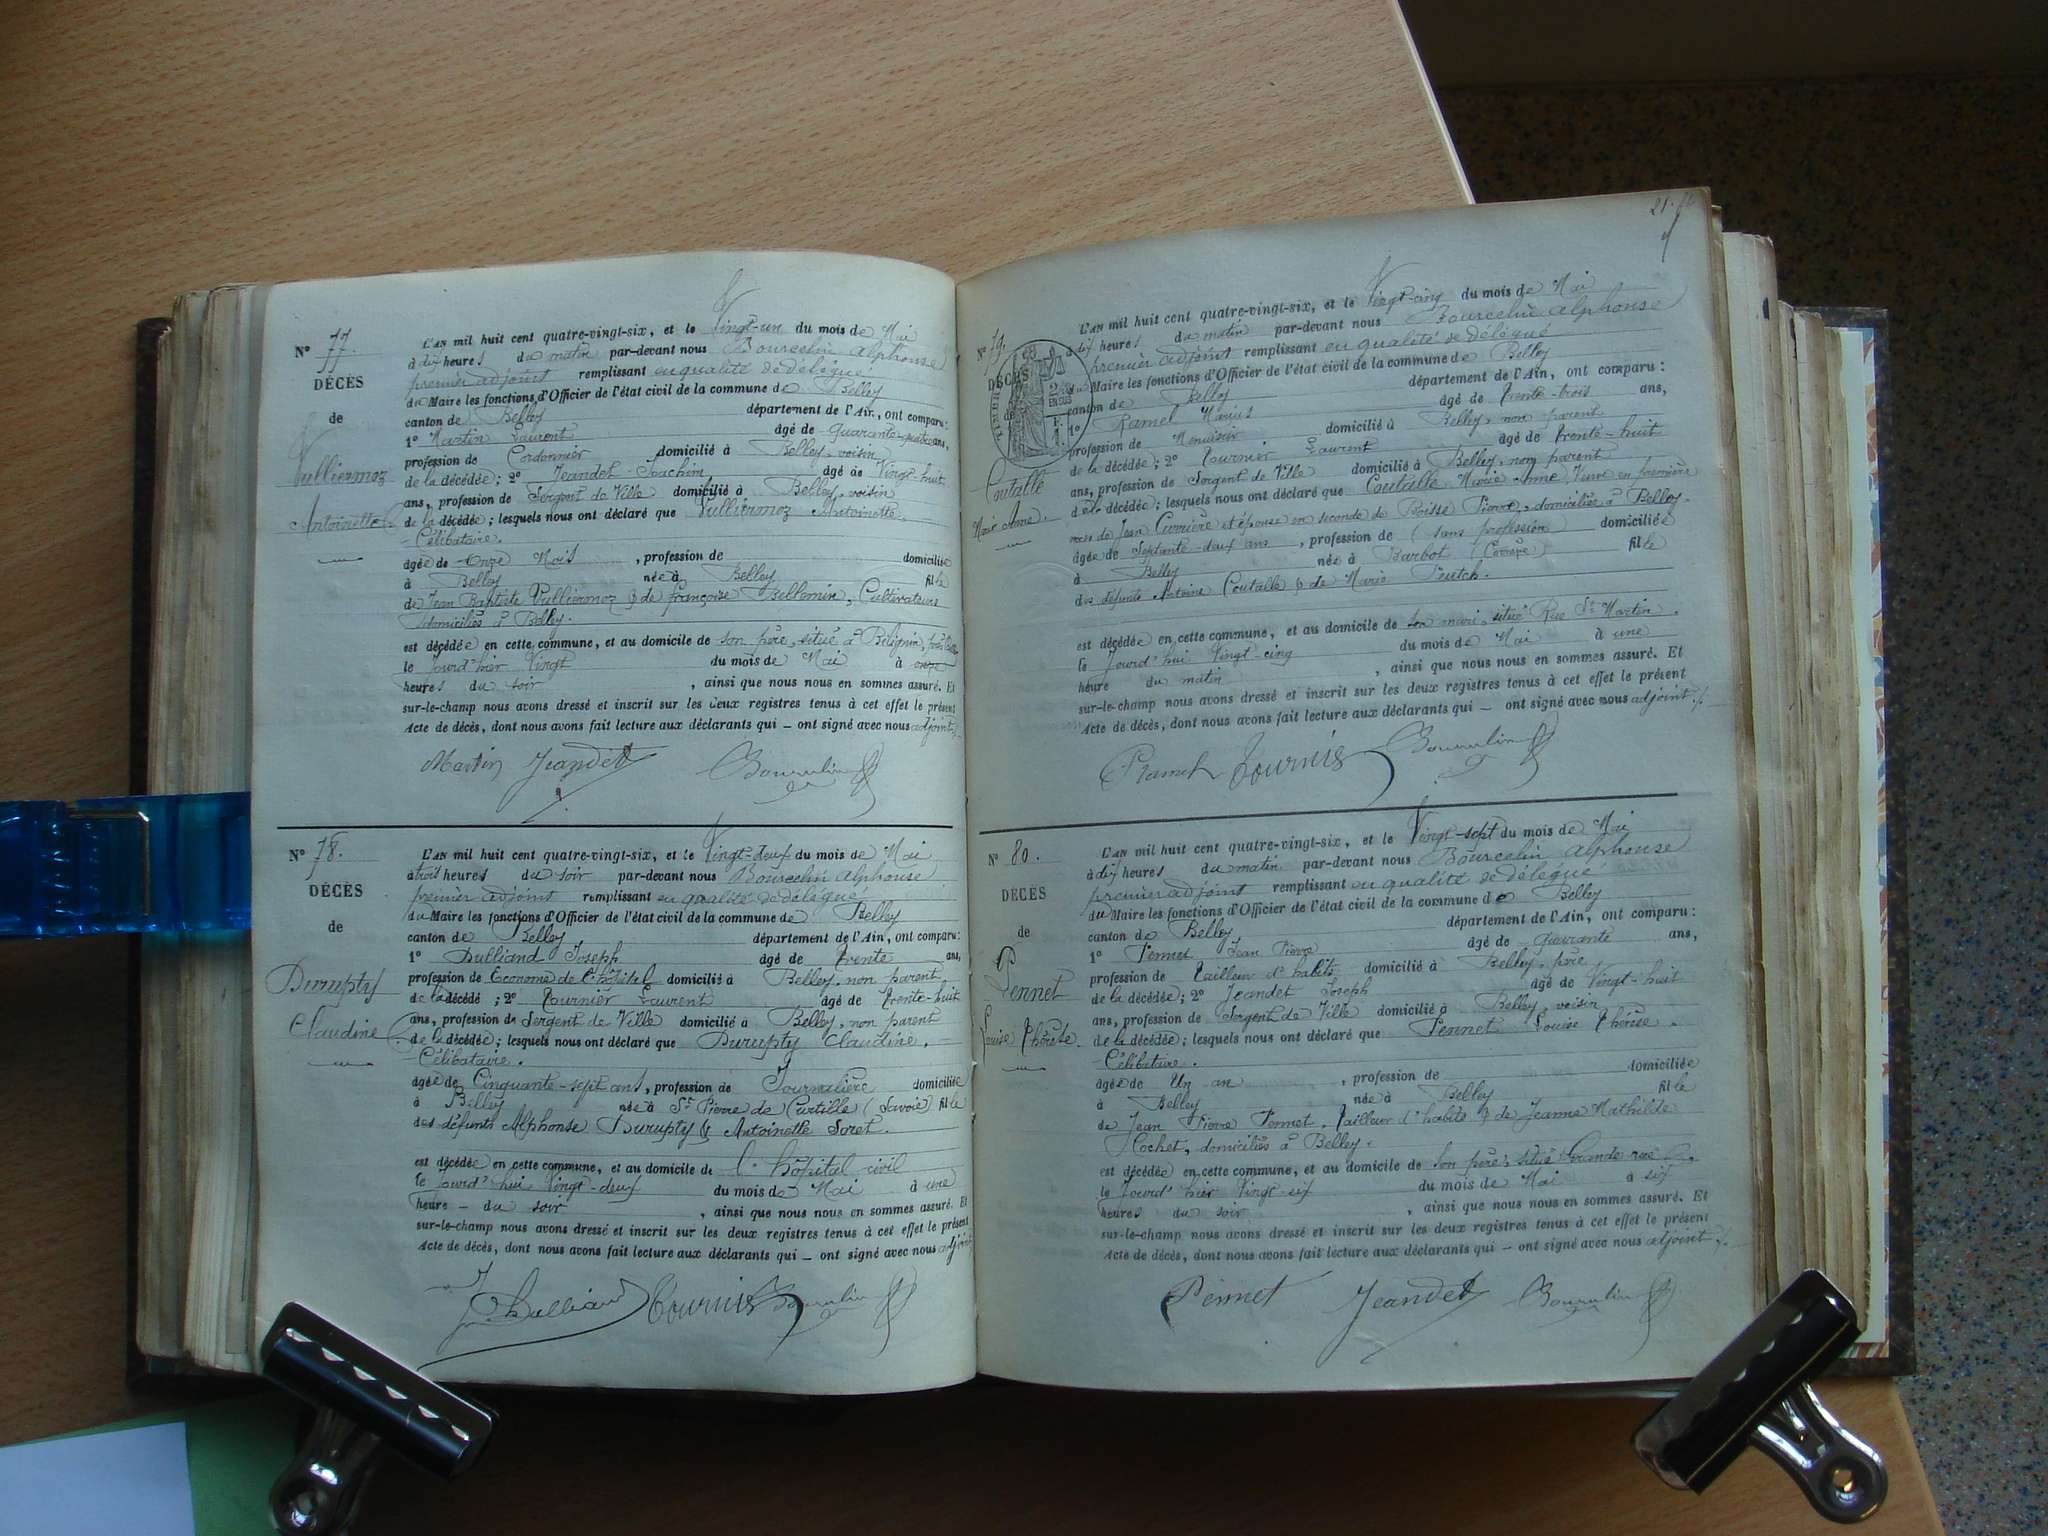 N° 77.
DÉCÈS
de
Vulliermoz
Antoinette
L'AN mil huit cent quatre-vingt-six, et le Vingt-un du mois de Mai
à dix heures du matin par-devant nous Bourcelin Alphonse
premier adjoint remplissant en qualité de délégué
du Maire les fonctions d'Officier de l'état civil de la commune de Belley
canton de Belley département de l'Ain, ont comparu:
1° Martin Laurent âgé de quarante-quatre ans,
profession de Cordonnier domicilié à Belley, voisin
de la décédée; 2° Jeandet Joachim âgé de Vingt-huit
ans, profession de Sergent de Ville domicilié à Belley, voisin
de la décédée; lesquels nous ont déclaré que Vulliermoz Antoinette,
Célibataire.
âgée de Onze Mois, profession de domiciliée
à Belley née à Belley fille
de Jean Baptiste Vulliermoz & de Françoise Bellemin, Cultivateurs
domiciliés à Belley.
est décédée en cette commune, et au domicile de son père, situé à Billignin, près Belley
le Jourd'hier Vingt du mois de Mai à onze
heures du soir, ainsi que nous nous en sommes assuré. Et
sur-le-champ nous avons dressé et inscrit sur les deux registres tenus à cet effet le présent
Acte de décès, dont nous avons fait lecture aux déclarants qui — ont signé avec nous adjoint
Martin Jeandet Bourcelin
N° 78.
DÉCÈS
de
Durupty
Claudine
L'AN mil huit cent quatre-vingt-six, et le Vingt-deux du mois de Mai
à trois heures du soir par-devant nous Bourcelin Alphonse
premier adjoint remplissant en qualité de délégué
du Maire les fonctions d'Officier de l'état civil de la commune de Belley
canton de Belley département de l'Ain, ont comparu:
1° Dulliand Joseph âgé de trente ans,
profession de Econome de l'hôpital domicilié à Belley, non parent
de la décédé; 2° Tournier Laurent âgé de trente-huit
ans, profession de Sergent de Ville domicilié à Belley, non parent
de la décédée; lesquels nous ont déclaré que Durupty Claudine.
Célibataire.
âgée de Cinquante-sept ans, profession de Journalière domiciliée
à Belley née à St Pierre de Curtille (Savoie) fille
des défunts Alphonse Durupty & Antoinette Soret.
est décédée en cette commune, et au domicile de l'hôpital civil
le Jourd'hui Vingt-deux du mois de Mai à une
heure — du soir, ainsi que nous nous en sommes assuré. Et
sur-le-champ nous avons dressé et inscrit sur les deux registres tenus à cet effet le présent
Acte de décès, dont nous avons fait lecture aux déclarants qui — ont signé avec nous adjoint
J Dulliand Tournier Bourcelin
21.
N° 79.
DÉCÈS
de
Coutalle
Marie Anne.
L'AN mil huit cent quatre-vingt-six, et le Vingt-cinq du mois de Mai
à dix heures du matin par-devant nous Bourcelin Alphonse
premier adjoint remplissant en qualité de délégué
du Maire les fonctions d'Officier de l'état civil de la commune de Belley
canton de Belley département de l'Ain, ont comparu:
1° Ramel Marius âgé de trente-trois ans,
profession de Menuisier domicilié à Belley, non parent
de la décédée; 2° Tournier Laurent âgé de trente-huit
ans, profession de Sergent de Ville domicilié à Belley, non parent
de la décédée; lesquels nous ont déclaré que Coutalle Marie Anne, Veuve en premières
noces de Jean Currière et épouse en seconde de Boisse Pierre, domiciliée à Belley.
âgée de Septante-deux ans, profession de (sans profession domiciliée
à Belley née à Barbot (Corrèze) fille
des défunts Antoine Coutalle & de Marie Peutch.
est décédée en cette commune, et au domicile de son mari, situé Rue St Martin.
le Jourd'hui Vingt-cinq du mois de Mai à une
heure du matin, ainsi que nous nous en sommes assuré. Et
sur-le-champ nous avons dressé et inscrit sur les deux registres tenus à cet effet le présent
Acte de décès, dont nous avons fait lecture aux déclarants qui — ont signé avec nous adjoint
Ramel Tournier Bourcelin
N° 80.
DÉCÈS
de
Pennet
Louise Thérèse
L'AN mil huit cent quatre-vingt-six, et le Vingt-sept du mois de Mai
à dix heures du matin par-devant nous Bourcelin Alphonse
premier adjoint remplissant en qualité de délégué
du Maire les fonctions d'Officier de l'état civil de la commune de Belley
canton de Belley département de l'Ain, ont comparu:
1° Pennet Jean Pierre âgé de quarante ans,
profession de tailleur d'habits domicilié à Belley, père
de la décédée; 2° Jeandet Joseph âgé de Vingt-huit
ans, profession de Sergent de Ville domicilié à Belley, voisin
de la décédée; lesquels nous ont déclaré que Pennet Louise Thérèse.
Célibataire.
âgée de Un an, profession de domiciliée
à Belley née à Belley fille
de Jean Pierre Pennet, tailleur d'habits & de Jeanne Mathilde
Hochet, domiciliés à Belley.
est décédée en cette commune, et au domicile de son père, situé Grande rue
le Jourd'hier Vingt-six du mois de Mai à six
heures du soir, ainsi que nous nous en sommes assuré. Et
sur-le-champ nous avons dressé et inscrit sur les deux registres tenus à cet effet le présent
Acte de décès, dont nous avons fait lecture aux déclarants qui — ont signé avec nous adjoint
Pennet Jeandet Bourcelin